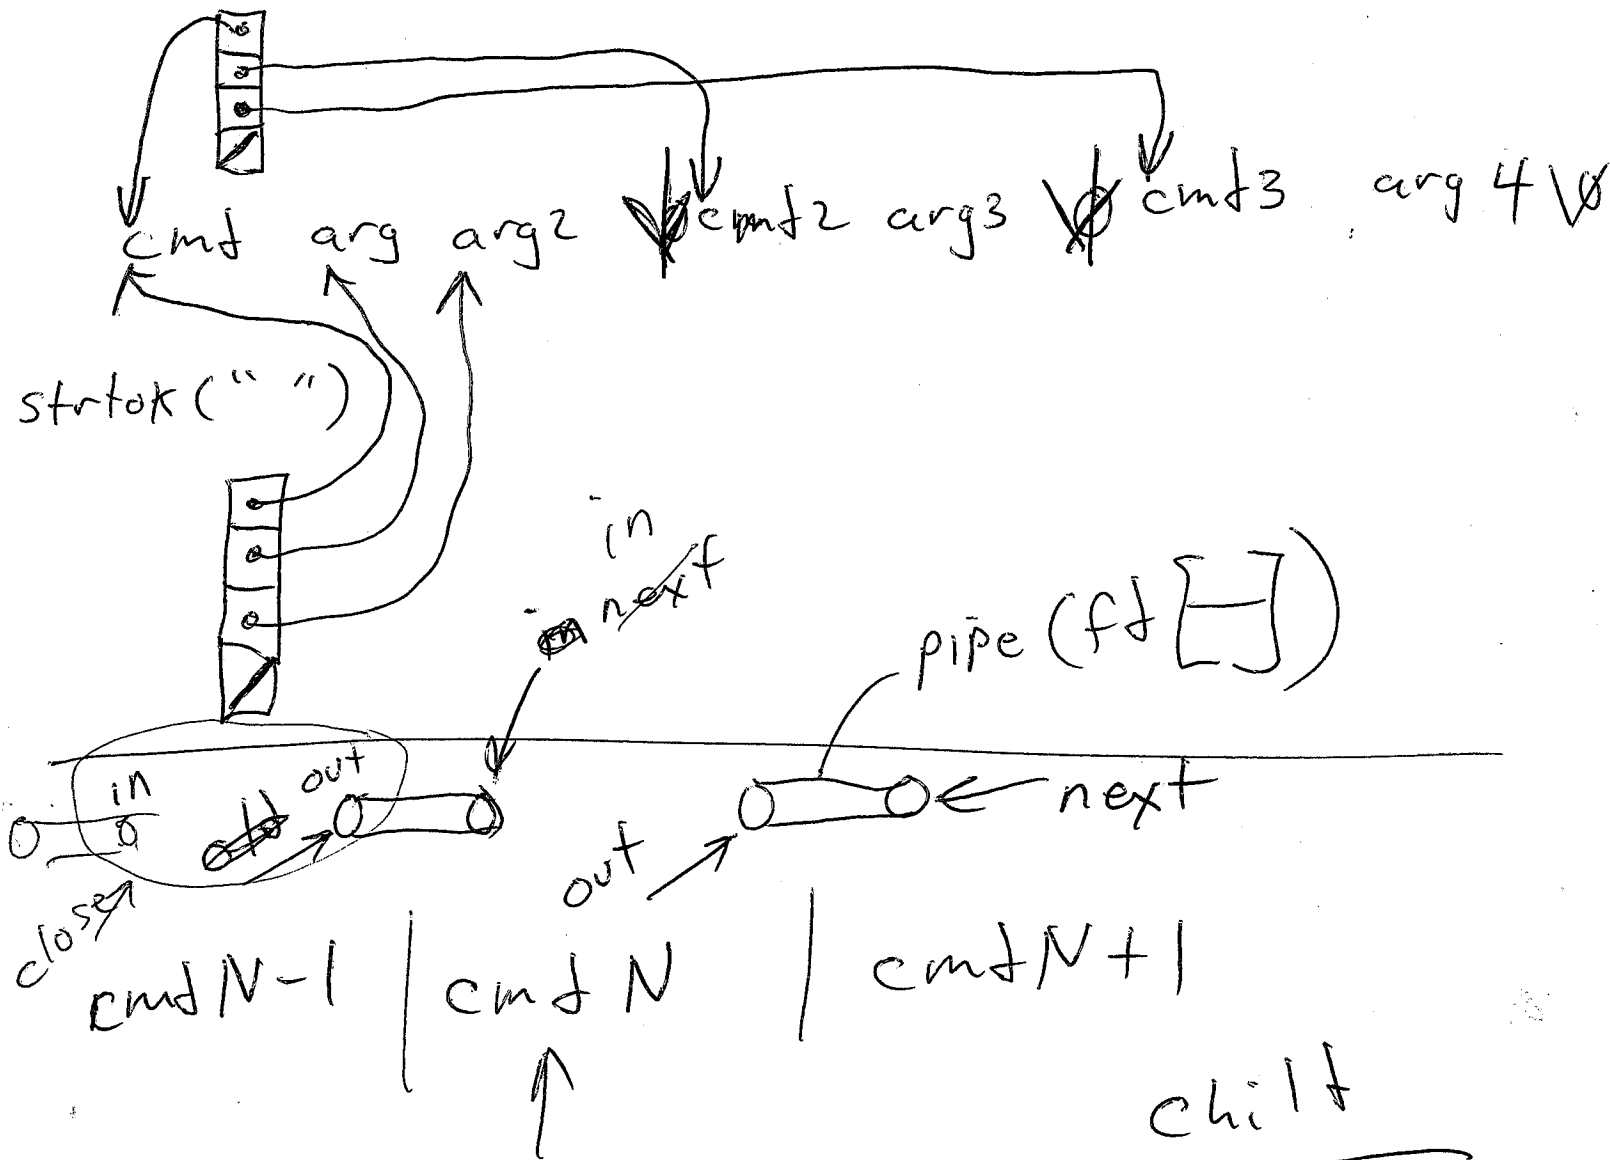 cmd arg arg2 \0 cmd2 arg3 \0 cmd3 arg 4 \0
strtok (" ")
in
next
pipe (fd [ ])
in out
next
out
close
cmd N-1 | cmd N | cmd N+1
child